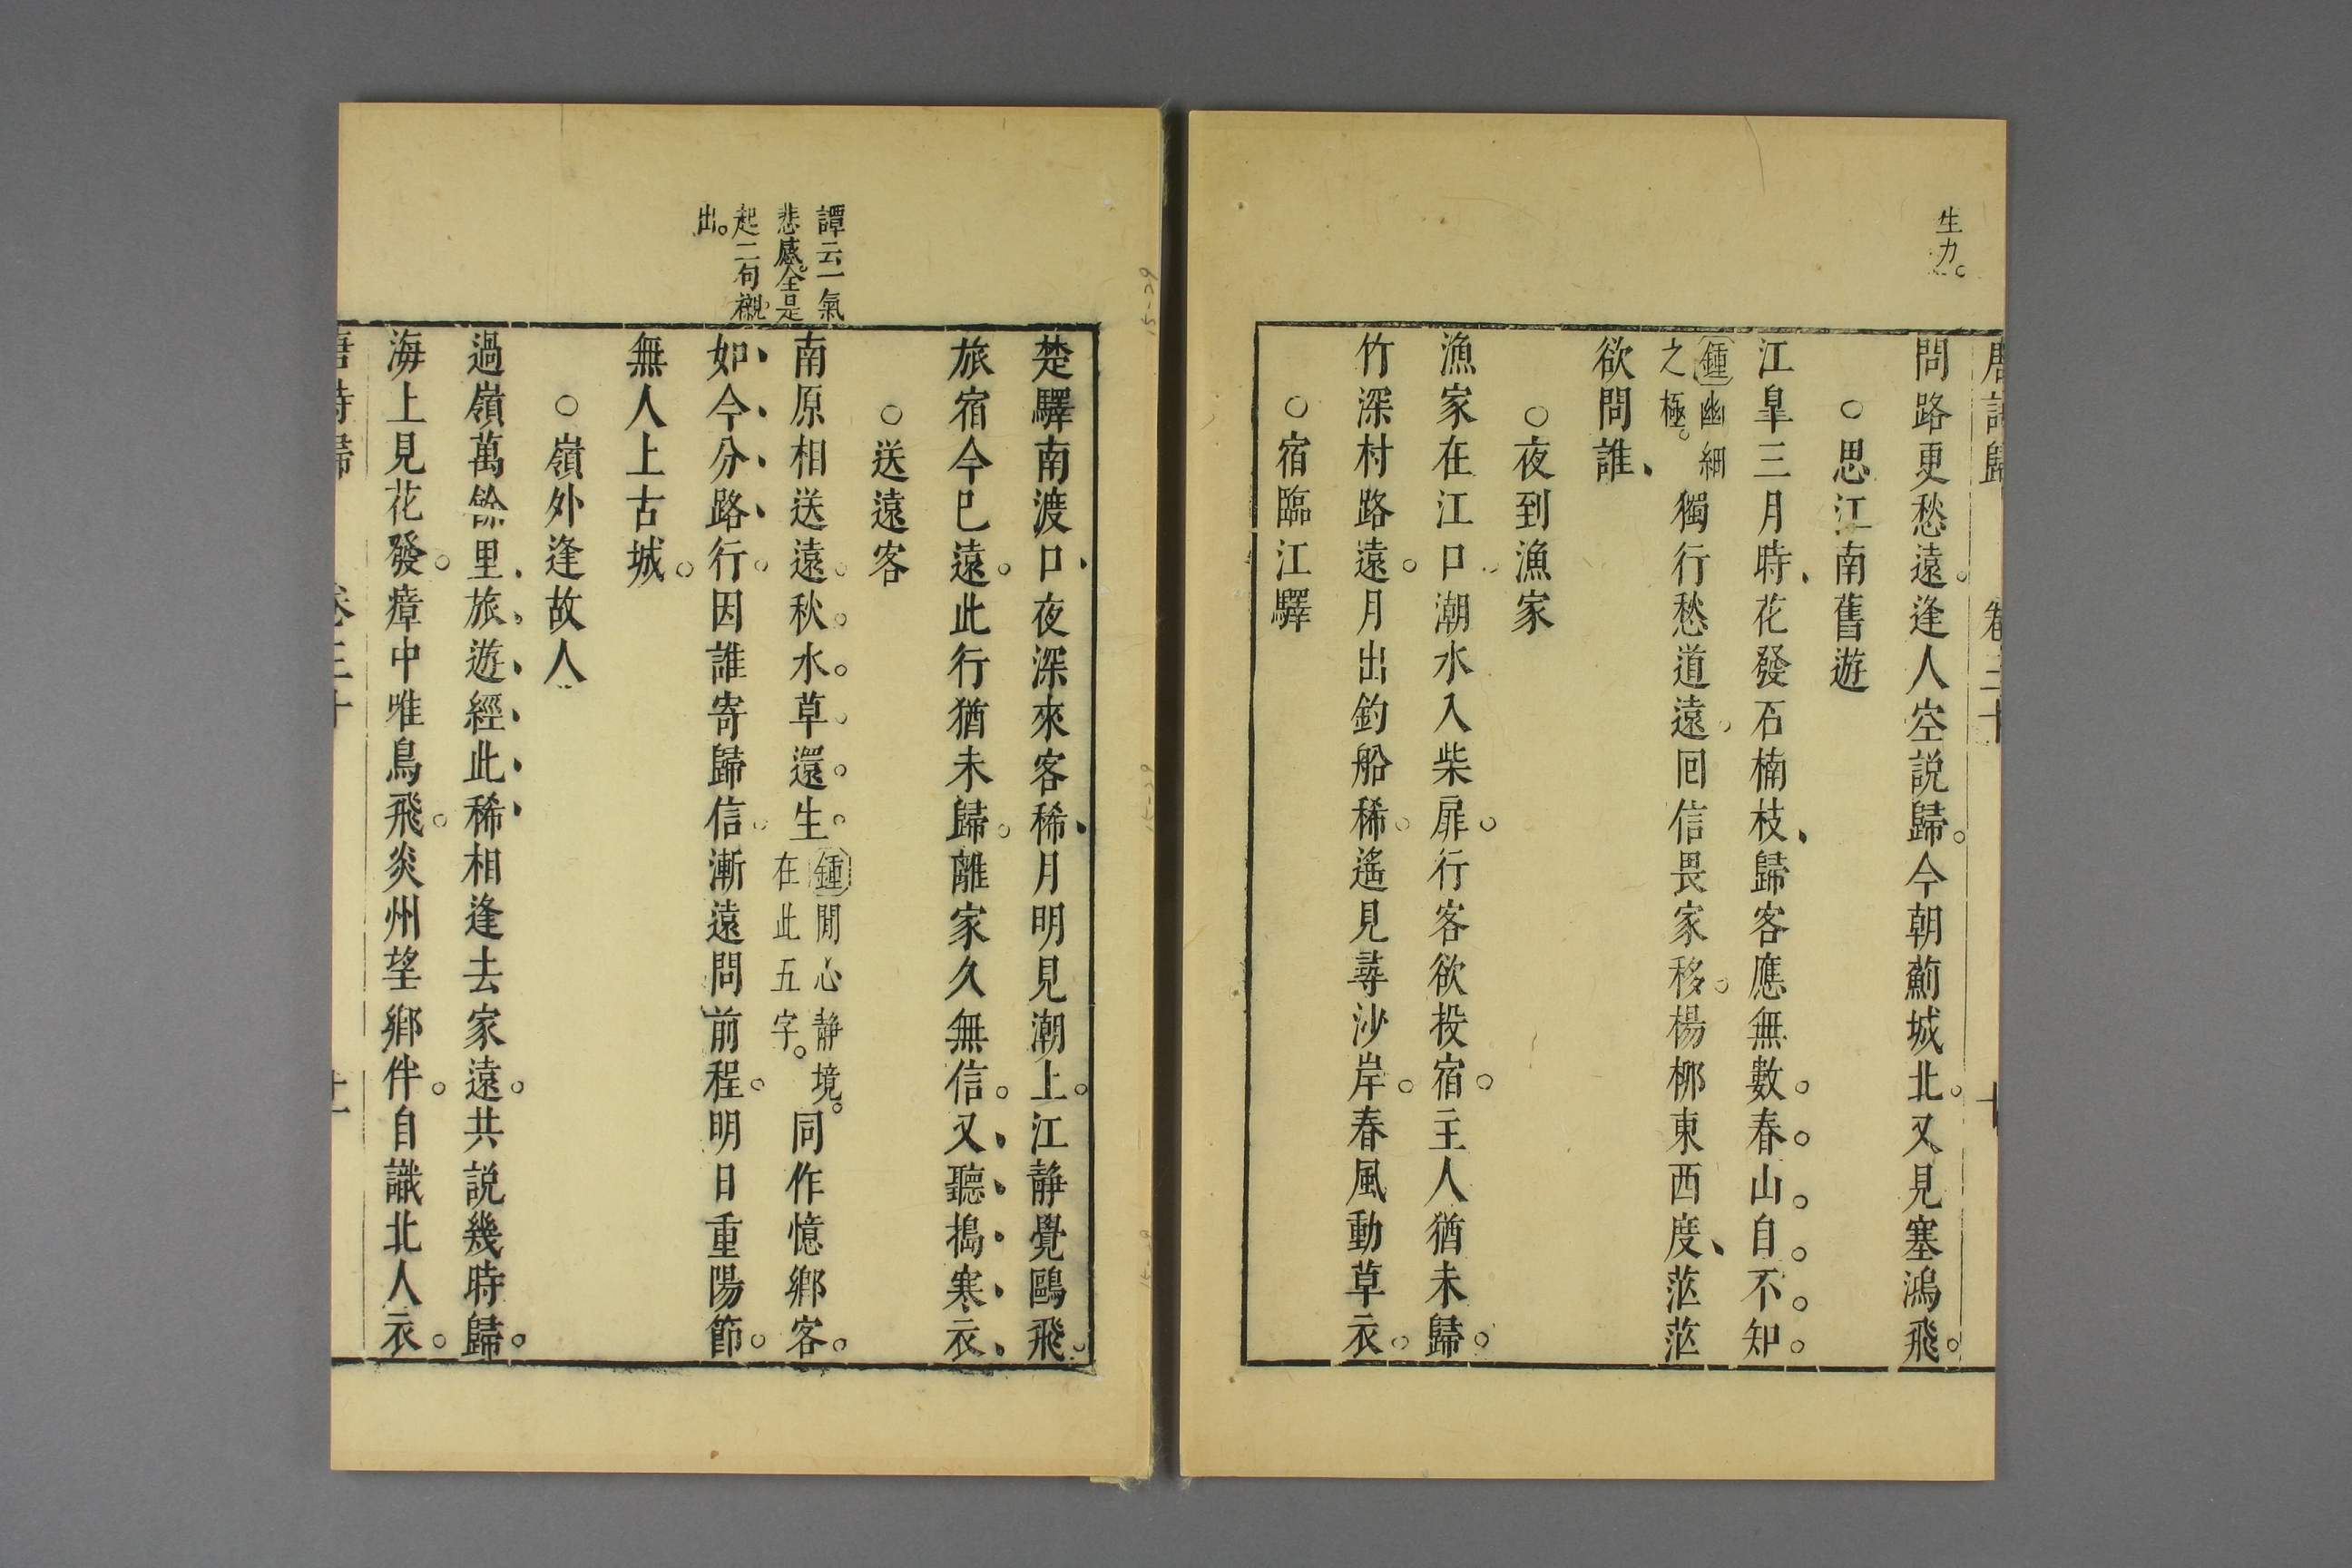 生力。
唐詩歸　卷三十　十
問路更愁遠。逢人空説歸。今朝薊城北。又見塞鴻飛。
○思江南舊遊
江臯三月時、花發石楠枝、歸客應無數。春山自不知。
鍾幽細之極。獨行愁道遠。回信畏家移。楊柳東西度、茫茫
欲問誰、
○夜到漁家
漁家在江口潮水入柴扉。行客欲投宿。主人猶未歸。
竹深村路遠。月出釣船稀。遙見尋沙岸。春風動草衣。
○宿臨江驛
譚云一氣
悲感。全是
起二句襯
出。
楚驛南渡口、夜深來客稀、月明見潮上。江静覺鷗飛。
旅宿今已遠。此行猶未歸。離家久無信。又聽搗寒衣、
○送遠客
南原相送遠。秋水草還生。鍾閒心静境。在此五字。同作憶鄉客。
如今分路行。因誰寄歸信。漸遠問前程。明日重陽節。
無人上古城。
○嶺外逢故人
過嶺萬餘里、旅遊經此稀、相逢去家遠。共説幾時歸。
海上見花發。瘴中唯鳥飛。炎州望鄉伴。自識北人衣。
唐詩歸　卷三十　十一